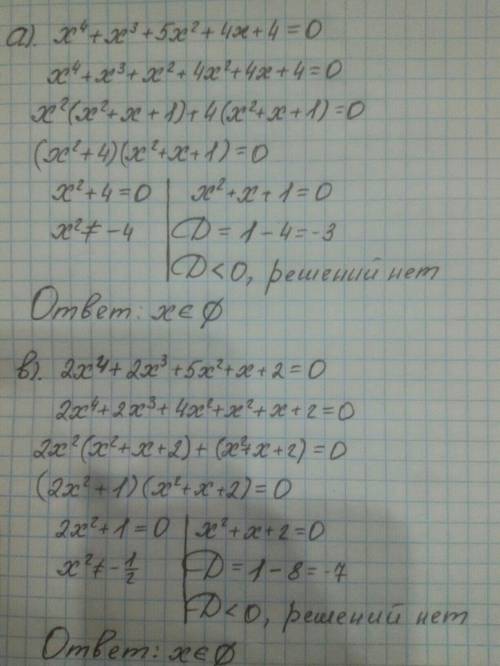 а). x⁴ + x³ + 5x² + 4x + 4 = 0
x⁴ + x³ + x² + 4x² + 4x + 4 = 0
x²(x² + x + 1) + 4(x² + x + 1) = 0
(x² + 4)(x² + x + 1) = 0
x² + 4 = 0 | x² + x + 1 = 0
x² ≠ -4 | D = 1 - 4 = -3
D < 0, решений нет
Ответ: x ∈ ∅
в). 2x⁴ + 2x³ + 5x² + x + 2 = 0
2x⁴ + 2x³ + 4x² + x² + x + 2 = 0
2x²(x² + x + 2) + (x² + x + 2) = 0
(2x² + 1)(x² + x + 2) = 0
2x² + 1 = 0 | x² + x + 2 = 0
x² ≠ -1/2 | D = 1 - 8 = -7
D < 0, решений нет
Ответ: x ∈ ∅